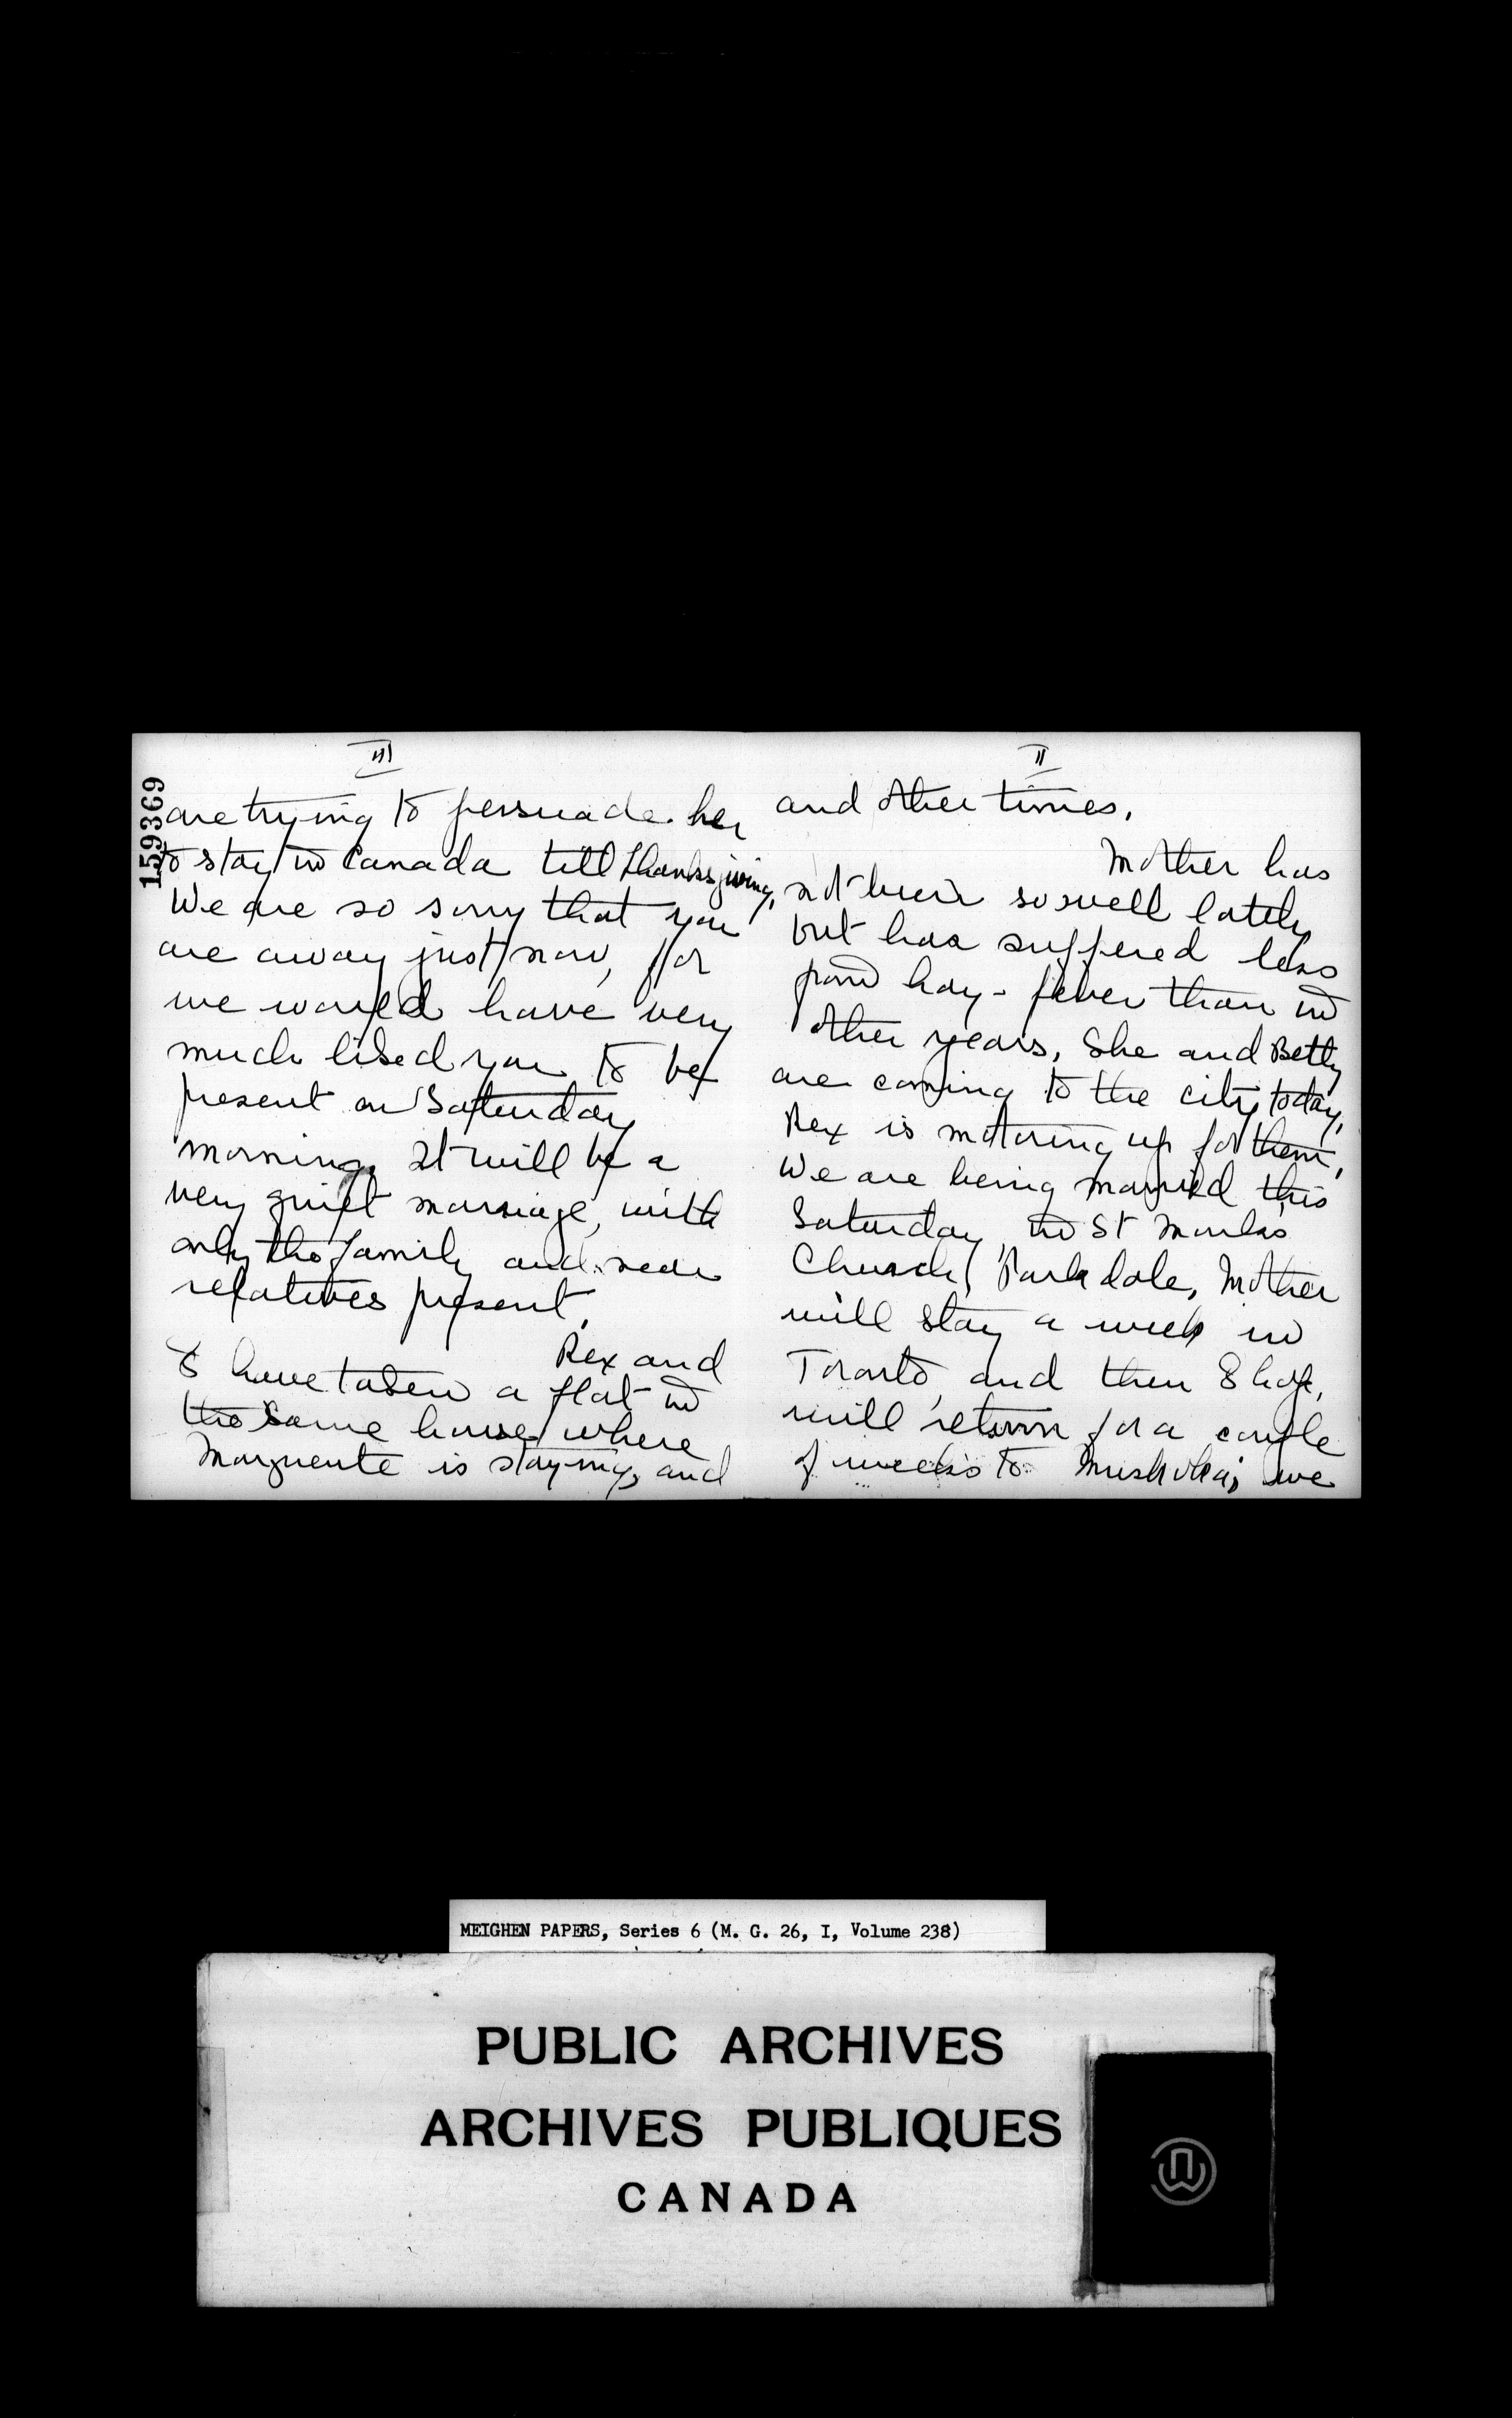 II
and other times.
Mother has
not been so well lately
but has suffered less
from hay-fever than in
other years. She and Betty
are coming to the city today,
Rex is motoring up for them.
We are being married this
Saturday, in St Mark's
Church, Parkdale. Mother
will stay a week in
Toronto, and then I hope,
will return for a couple
of weeks to Muskoka; we
III
are trying to persuade her
to stay in Canada till Thanksgiving.
We are so sorry that you
are away just now, for
we would have very
much liked you to be
present on Saturday
morning. It will be a
very quiet marriage, with
only the family and near
relatives present.
Rex and
I have taken a flat in
the same house where
Marguerite is staying, and
159369
MEIGHEN PAPERS, Series 6 (M. G. 26, I, Volume 238)
PUBLIC ARCHIVES
ARCHIVES PUBLIQUES
CANADA